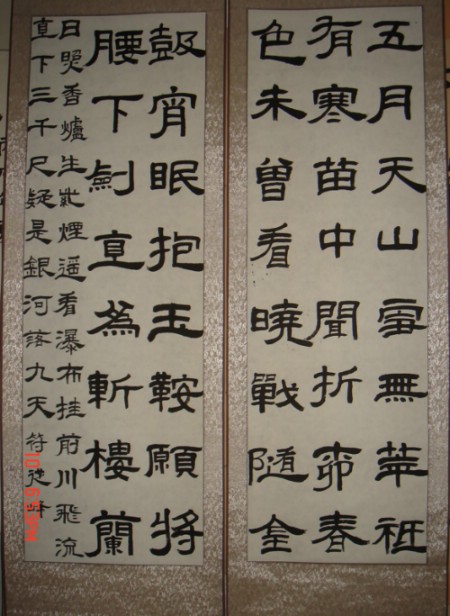 五月天山雪無華祗
有寒笛中聞折柳春
色未曾看曉戰隨金
鼓宵眠抱玉鞍願將
腰下劍直為斬樓蘭
日照香爐生紫煙遥看瀑布挂前川飛流
直下三千尺疑是銀河落九天 符